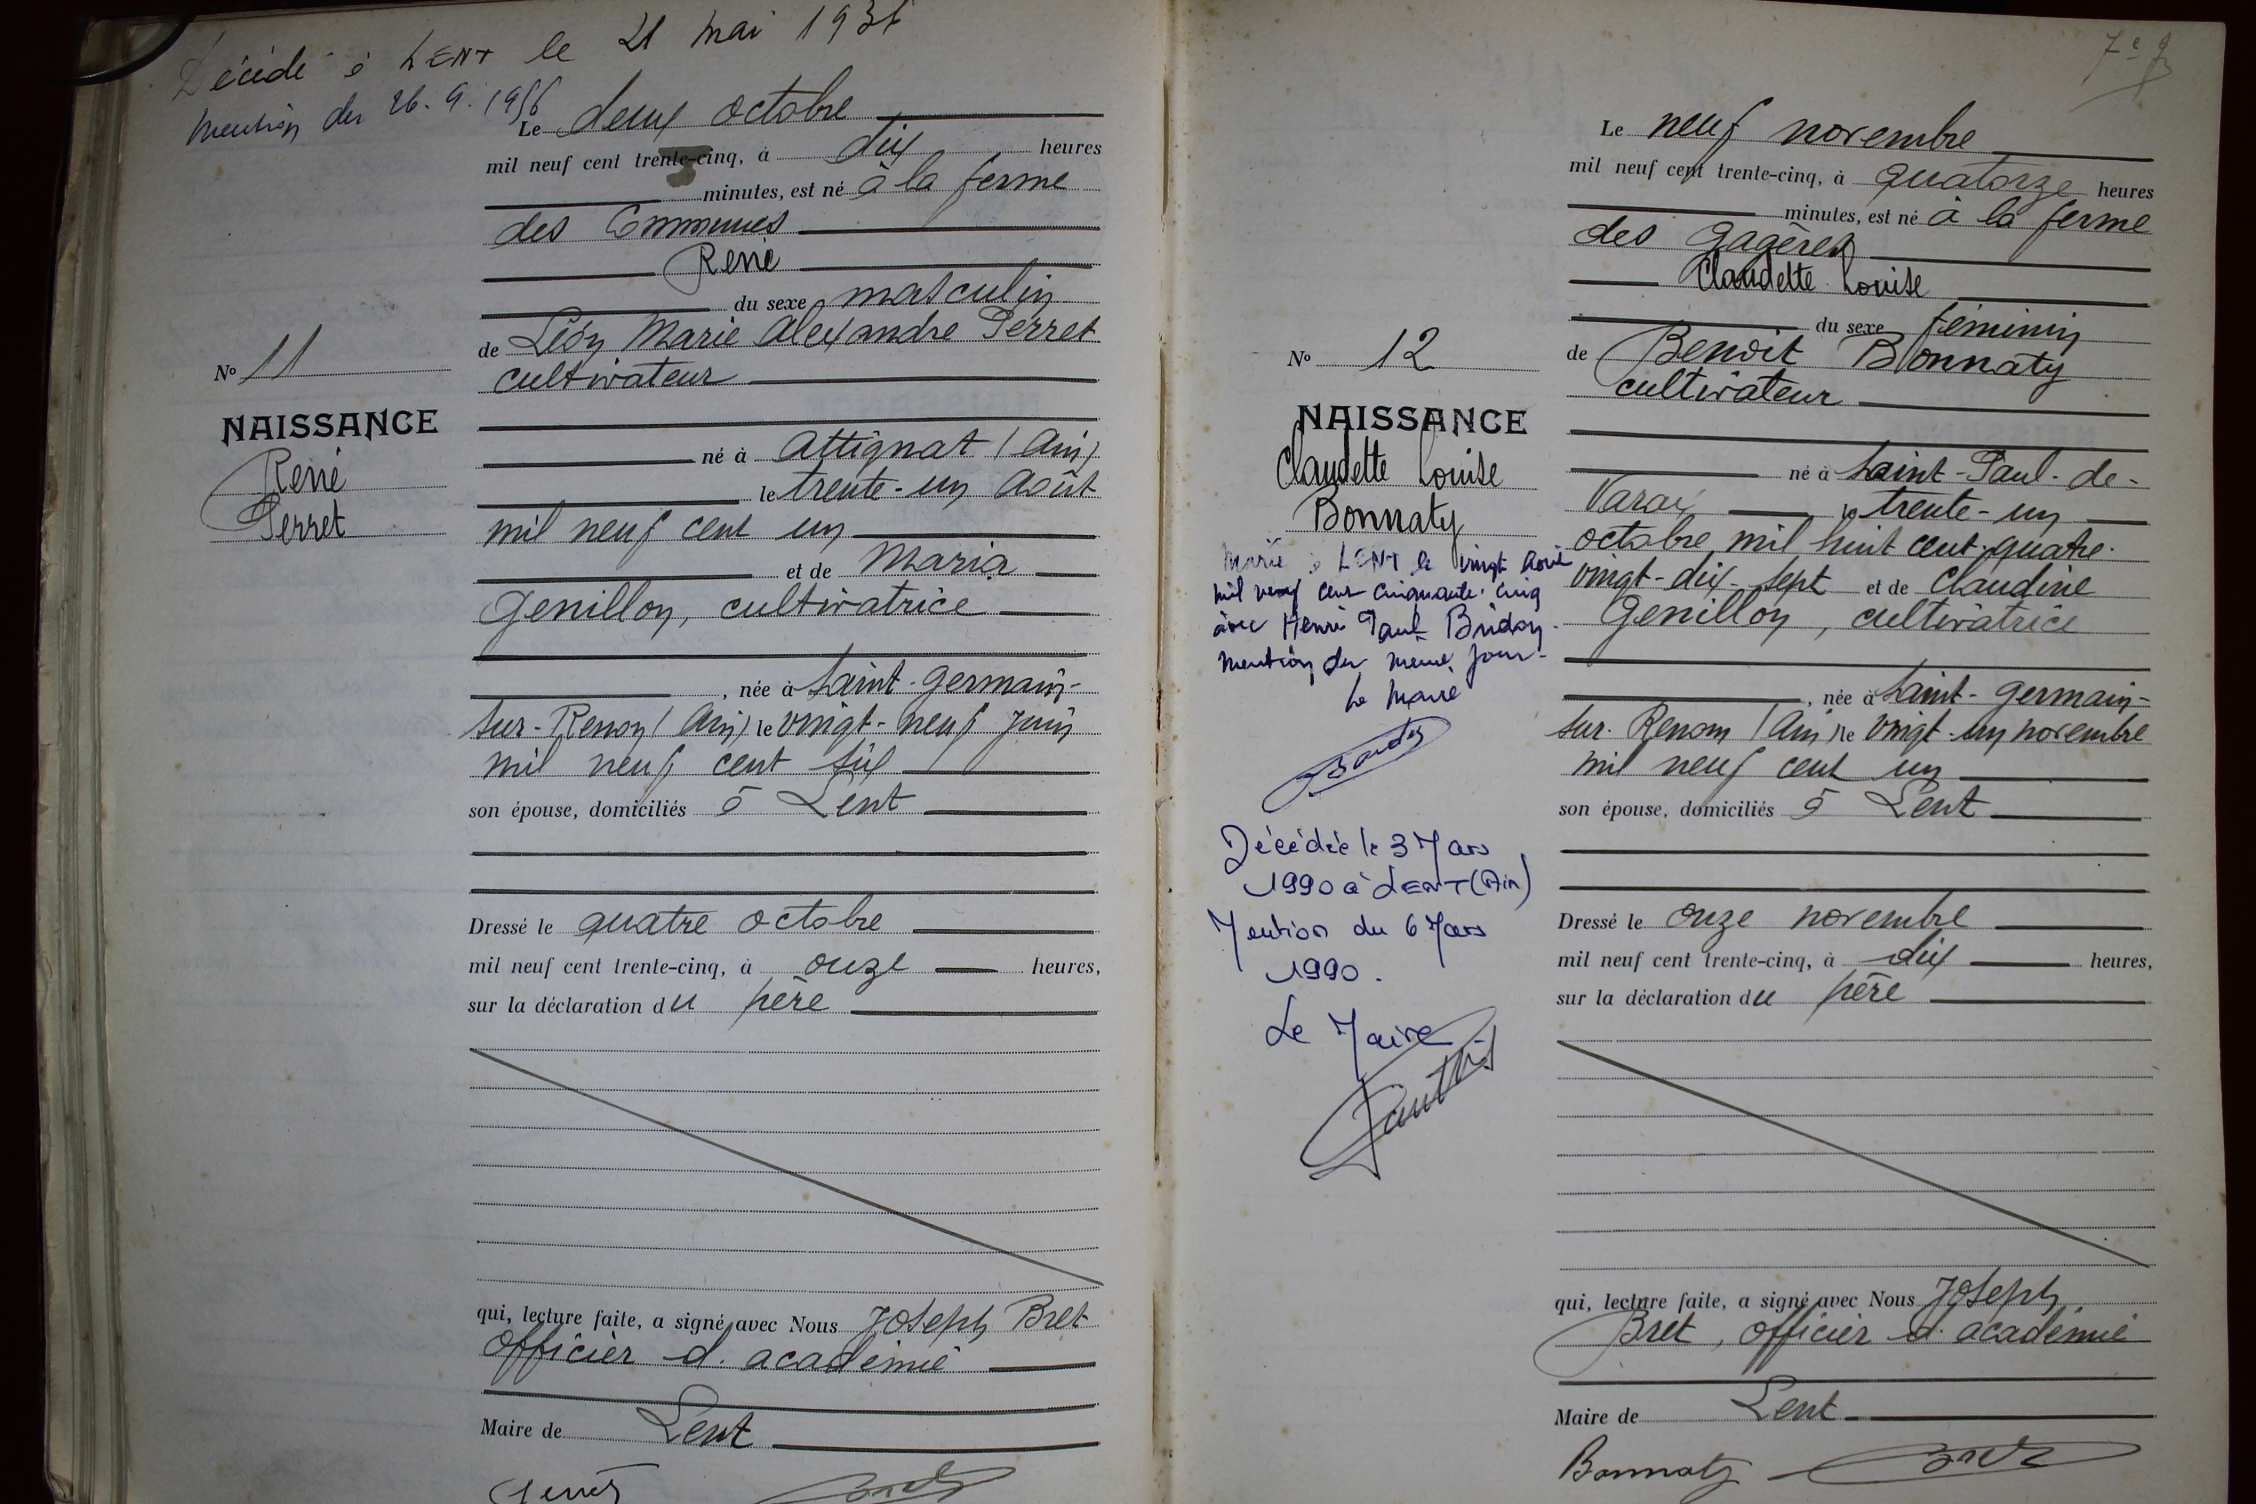 Décédé à LENT le 21 mai 1936
mention du 26.9.1956
Le deux octobre
mil neuf cent trente-cinq, à dix heures
minutes, est né à la ferme
des Communes
René
du sexe masculin
de Léon Marie Alexandre Perret
cultivateur
né à Attignat (Ain)
le trente-un Août
mil neuf cent un
et de Maria
Genillon, cultivatrice
, née à Saint-Germain-
sur-Renon (Ain) le vingt-neuf Juin
mil neuf cent six
son épouse, domiciliés à Lent
Dressé le quatre octobre
mil neuf cent trente-cinq, à onze heures,
sur la déclaration du père
qui, lecture faite, a signé avec Nous Joseph Bret
officier d'académie
Maire de Lent
Perret
No 11
NAISSANCE
René
Perret
Le neuf novembre
mil neuf cent trente-cinq, à quatorze heures
minutes, est né à la ferme
des Gagères
Claudette Louise
du sexe féminin
de Benoit Bonnaty
cultivateur
né à Saint-Paul-de-
Varax le trente-un
octobre mil huit cent quatre-
vingt-dix-sept et de Claudine
Genillon, cultivatrice
, née à Saint-Germain-
sur-Renom (Ain) le vingt-un novembre
mil neuf cent un
son épouse, domiciliés à Lent
Dressé le onze novembre
mil neuf cent trente-cinq, à dix heures,
sur la déclaration du père
qui, lecture faite, a signé avec Nous Joseph
Bret, officier d'académie
Maire de Lent
Bonnaty
No 12
NAISSANCE
Claudette Louise
Bonnaty
Marié à LENT le vingt Août
mil neuf cent cinquante-cinq
avec Henri Paul Bridon.
mention du même jour-
Le Maire
Décédée le 3 Mars
1990 à LENT (Ain)
Mention du 6 Mars
1990.
Le Maire